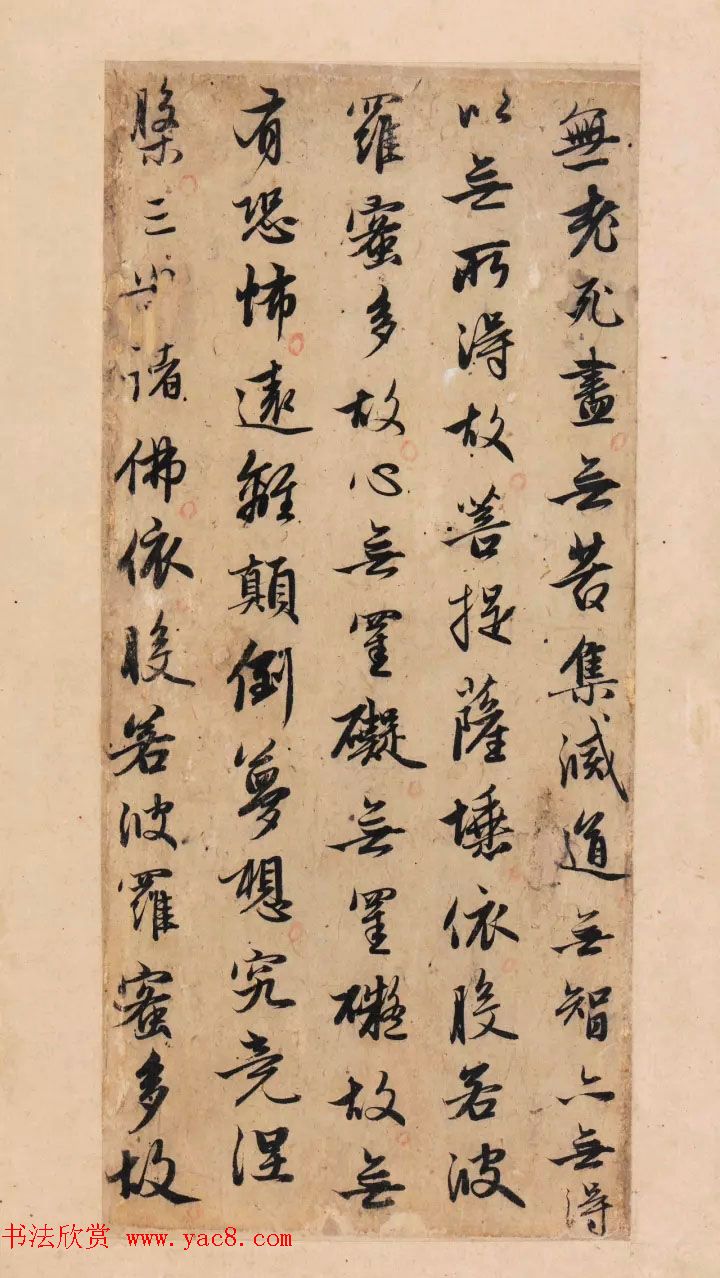 無老死盡無苦集滅道無智亦無得
以無所得故菩提薩埵依般若波
羅蜜多故心無罣礙無罣礙故無
有恐怖遠離顛倒夢想究竟涅
槃三世諸佛依般若波羅蜜多故
书法欣赏 www.yac8.com